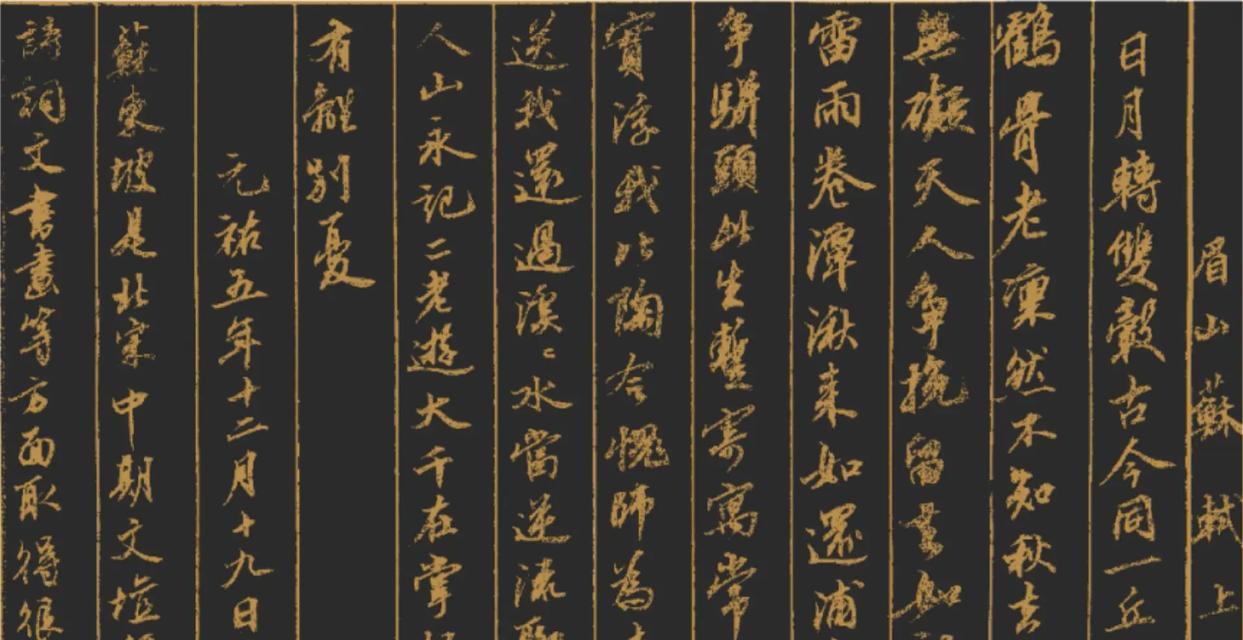 眉山蘇軾上
日月轉雙轂古今同一丘
鶴骨老凜然不知秋去
無礙天人爭挽留去如
雷雨卷潭湫来如還浦
爭駢頭此生暫寄寓常
實浮我比陶令愧師為
送我還過溪〻水當逆流聊
人山永記二老遊大千在掌
有離別憂
元祐五年十二月十九日
蘇東坡是北宋中期文壇
詩詞文書畫等方面取得很